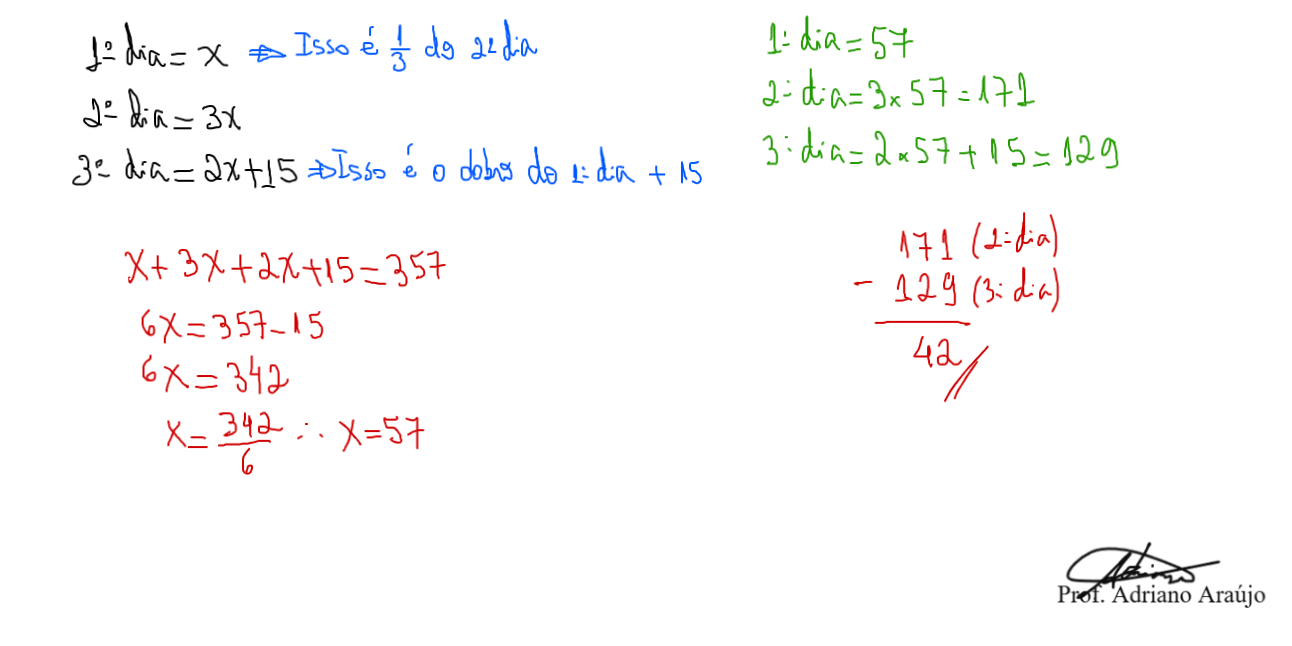 1º dia = x ⇒ Isso é 1/3 do 2º dia
2º dia = 3x
3º dia = 2x+15 ⇒ Isso é o dobro do 1º dia + 15
x + 3x + 2x + 15 = 357
6x = 357 - 15
6x = 342
x = 342/6 ∴ x = 57
1º dia = 57
2º dia = 3 x 57 = 171
3º dia = 2 x 57 + 15 = 129
171 (2º dia)
- 129 (3º dia)
42 //
Prof. Adriano Araújo